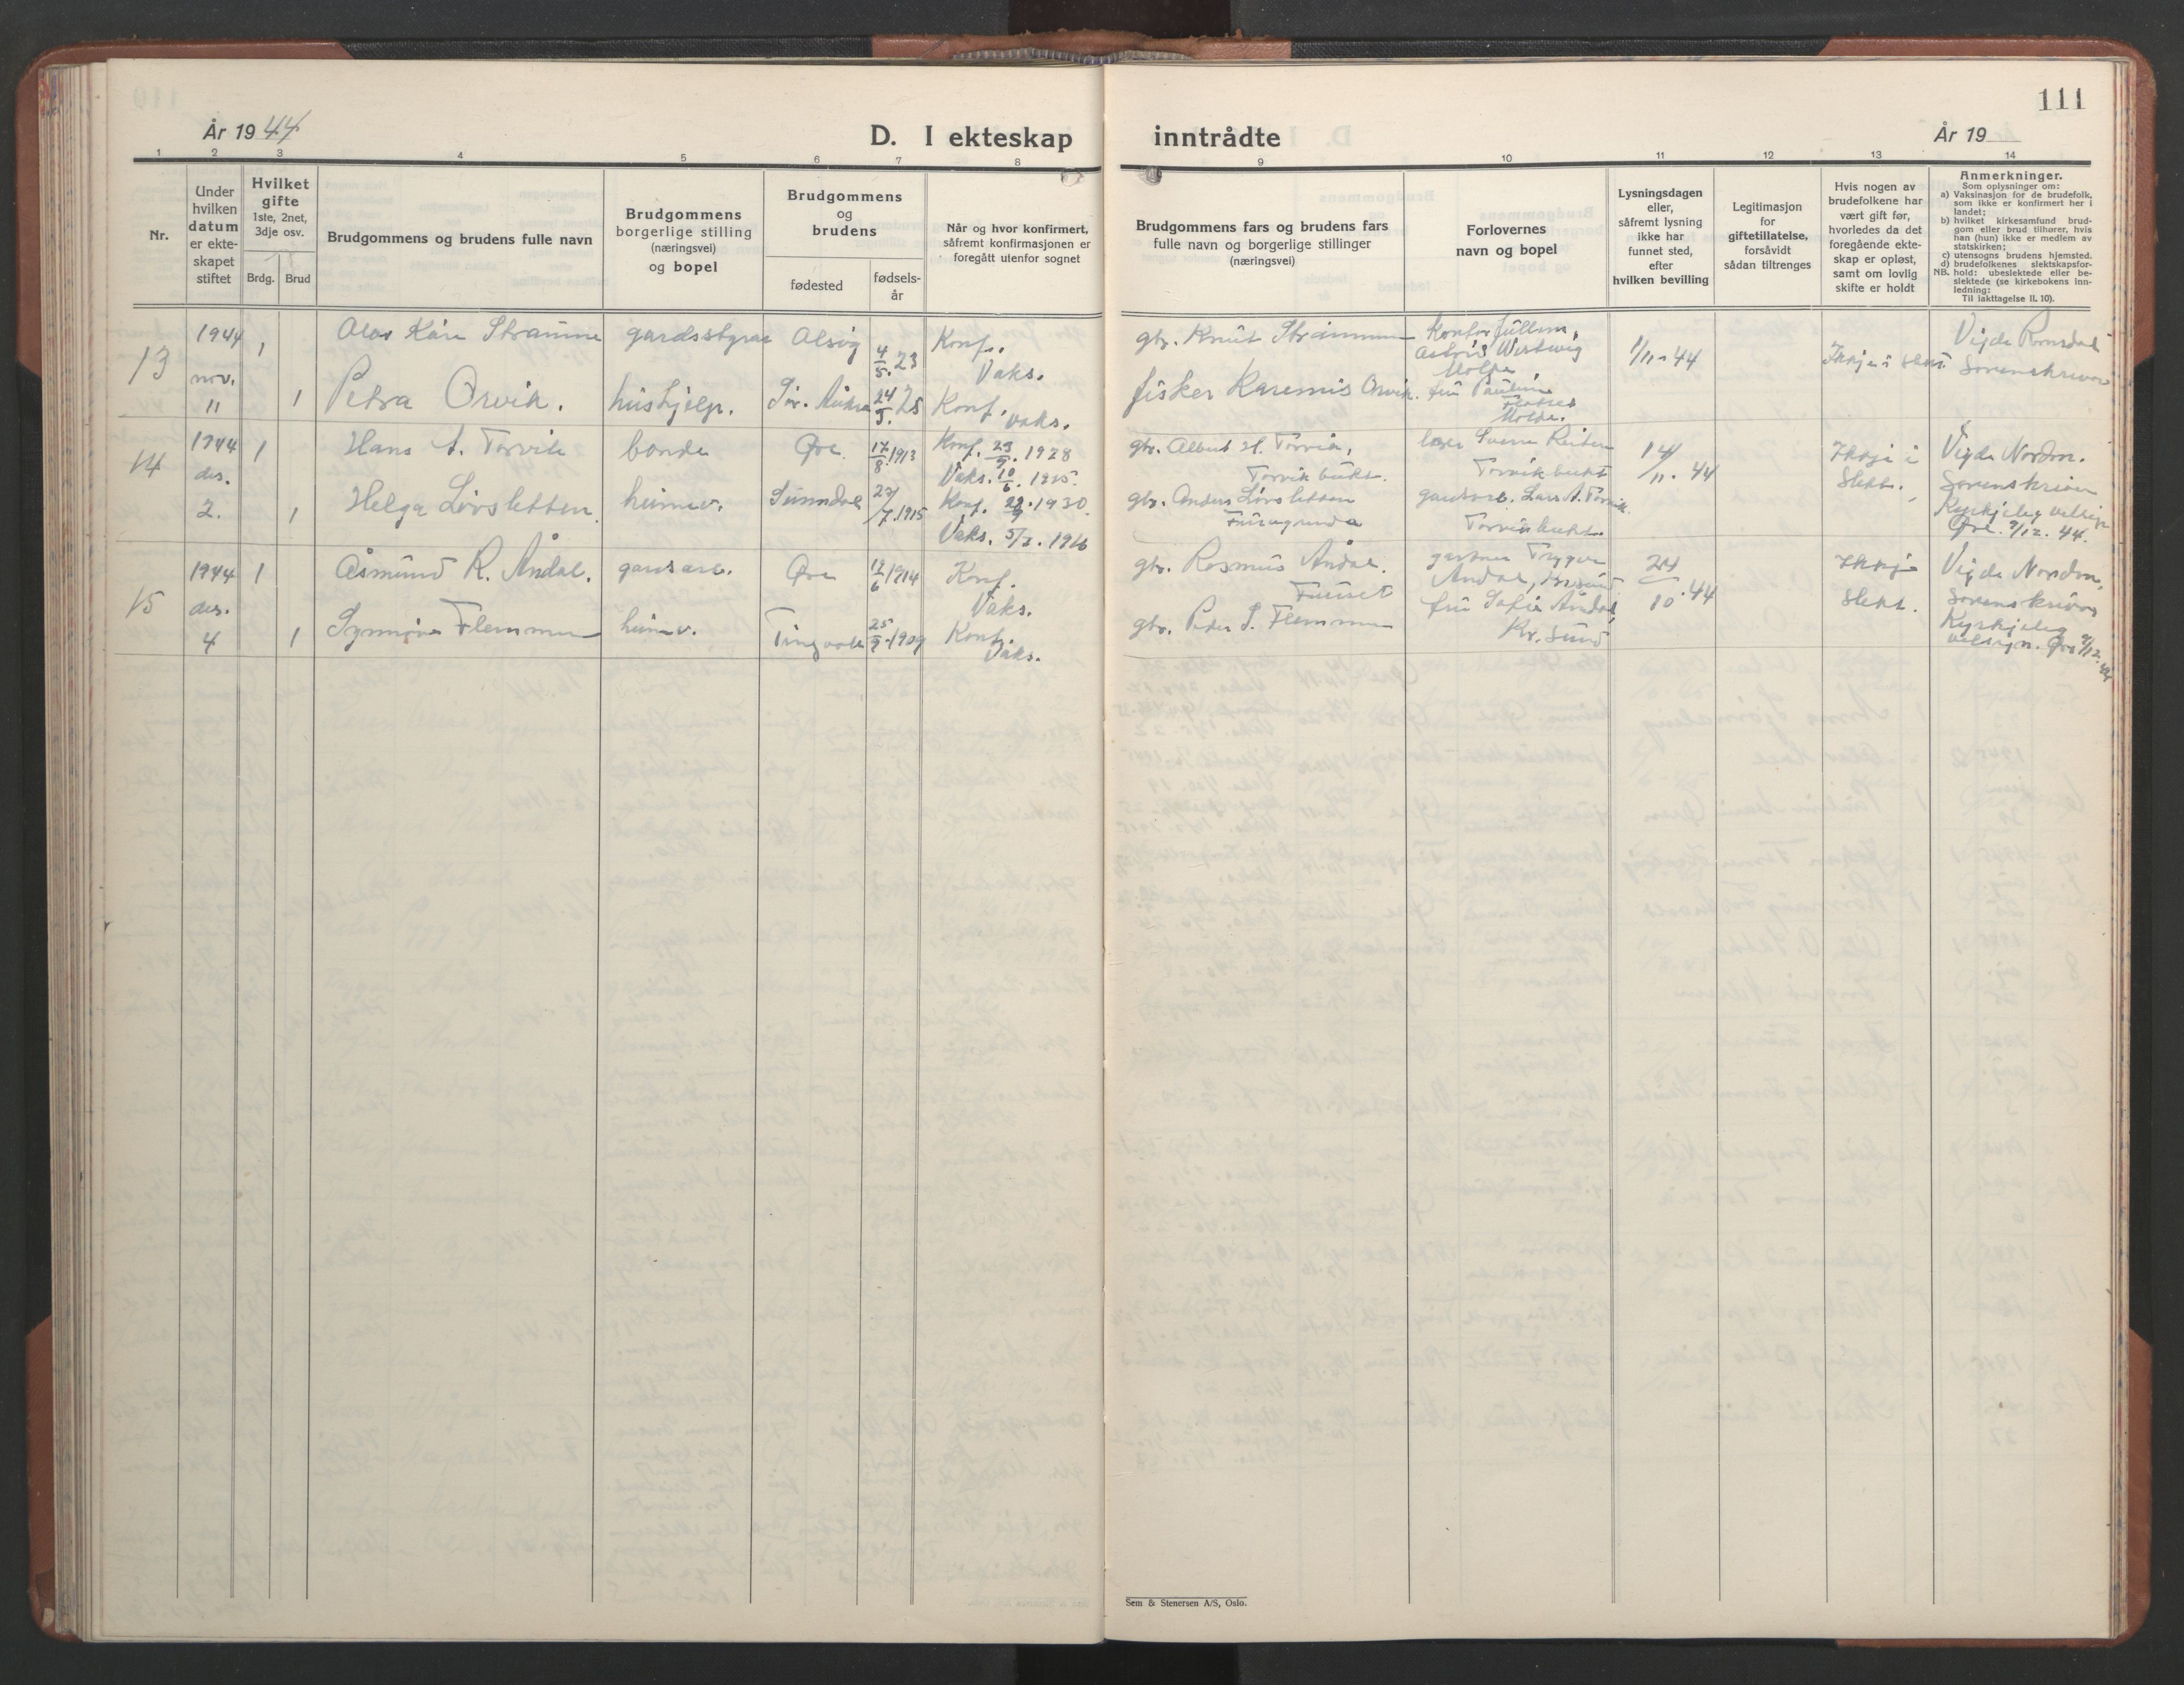 111
År 1944
D. I ekteskap inntrådte
År 19
1 2 3 4 5 6 7 8 9 10 11 12 13 14
Nr.
Under
hvilken
datum
er ekte-
skapet
stiftet
Hvilket
gifte
1ste, 2net,
3dje osv.
Brdg. Brud
Brudgommens og brudens fulle navn
Brudgommens
borgerlige stilling
(næringsvei)
og bopel
Brudgommens
og
brudens
fødested
fødsels-
år
Når og hvor konfirmert,
såfremt konfirmasjonen er
foregått utenfor sognet
Brudgommens fars og brudens fars
fulle navn og borgerlige stillinger
(næringsvei)
Forlovernes
navn og bopel
Lysningsdagen
eller,
såfremt lysning
ikke har
funnet sted,
efter
hvilken bevilling
Legitimasjon
for
giftetillatelse,
forsåvidt
sådan tiltrenges
Hvis nogen av
brudefolkene har
vært gift før,
hvorledes da det
foregående ekte-
skap er opløst,
samt om lovlig
skifte er holdt
Anmerkninger.
Som oplysninger om:
a) Vaksinasjon for de brudefolk,
som ikke er konfirmert her i
landet;
b) hvilket kirkesamfund brud-
gom eller brud tilhører, hvis
han (hun) ikke er medlem av
statskirken;
c) utensogns brudens hjemsted.
d) brudefolkenes slektskapsfor-
NB. hold: ubeslektede eller be-
slektede (se kirkebokens inn-
ledning:
Til iakttagelse II. 10).
13
1944
nov.
11
1
Kåre
4/5.23
Konf.
Vaks.
gbr. Knut
Molde
1/11.44
Vigde Romsdal
Sorenskrivar
1
Petra Orvik.
hushjelp.
24/5.25
Konf.
Vaks.
fisker Orvik.
fru
Molde.
14
1944
des.
2.
1
Hans A. Torvik
bonde
Øre.
17/8.1913
Konf. 23/9.1928
Vaks. 10/6.1915.
gbr. Albert H. Torvik,
Torvikbukt.
Torvikbukt
14/11.44
Ikkje i
Slekt.
Vigde Nordm.
Sorenskrivar
Kyrkjeleg velsign
Øre. 9/12.44.
1
Helga Løvsletten
heimev.
Sunndal
1915
Konf. 1930.
Vaks. 1916
gbr. Anders Løvsletten
Furugrenda
gardsarb. Lars A. Torvik.
Torvikbukt.
15
1944
des.
4
1
Åsmund R. Åndal.
gardsarb.
Øre
1914
Konf.
Vaks.
gbr. Rasmus Åndal.
Trygve
Åndal,
24/10.44
Ikkje
Slekt.
Vigde Nordm,
Sorenskrivar
Kyrkjeleg
velsign. Øre 9/12.44
1
Synnøve Flemmen
heimev.
Tingvoll
1909
Konf.
Vaks.
gbr. Peder S. Flemmen
fru Sofie Åndal,
Kr.sund
Sem & Stenersen A/S, Oslo.